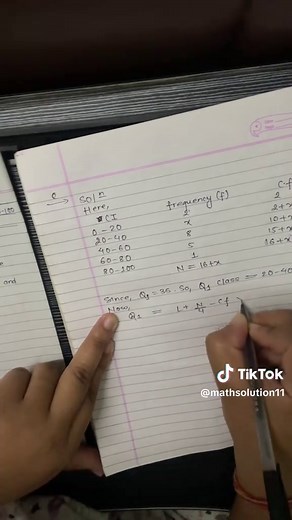 c → Sol⁠n
Here,
CI frequency (f) C.f
0-20 2 2
20-40 x 2+x
40-60 8 10+x
60-80 5 15+x
80-100 1 16+x
N = 16+x
Since, Q1 = 35. So, Q1 class = 20-40
Now,
Q1 = L + N/4 - Cf
and
TikTok
@mathsolution11